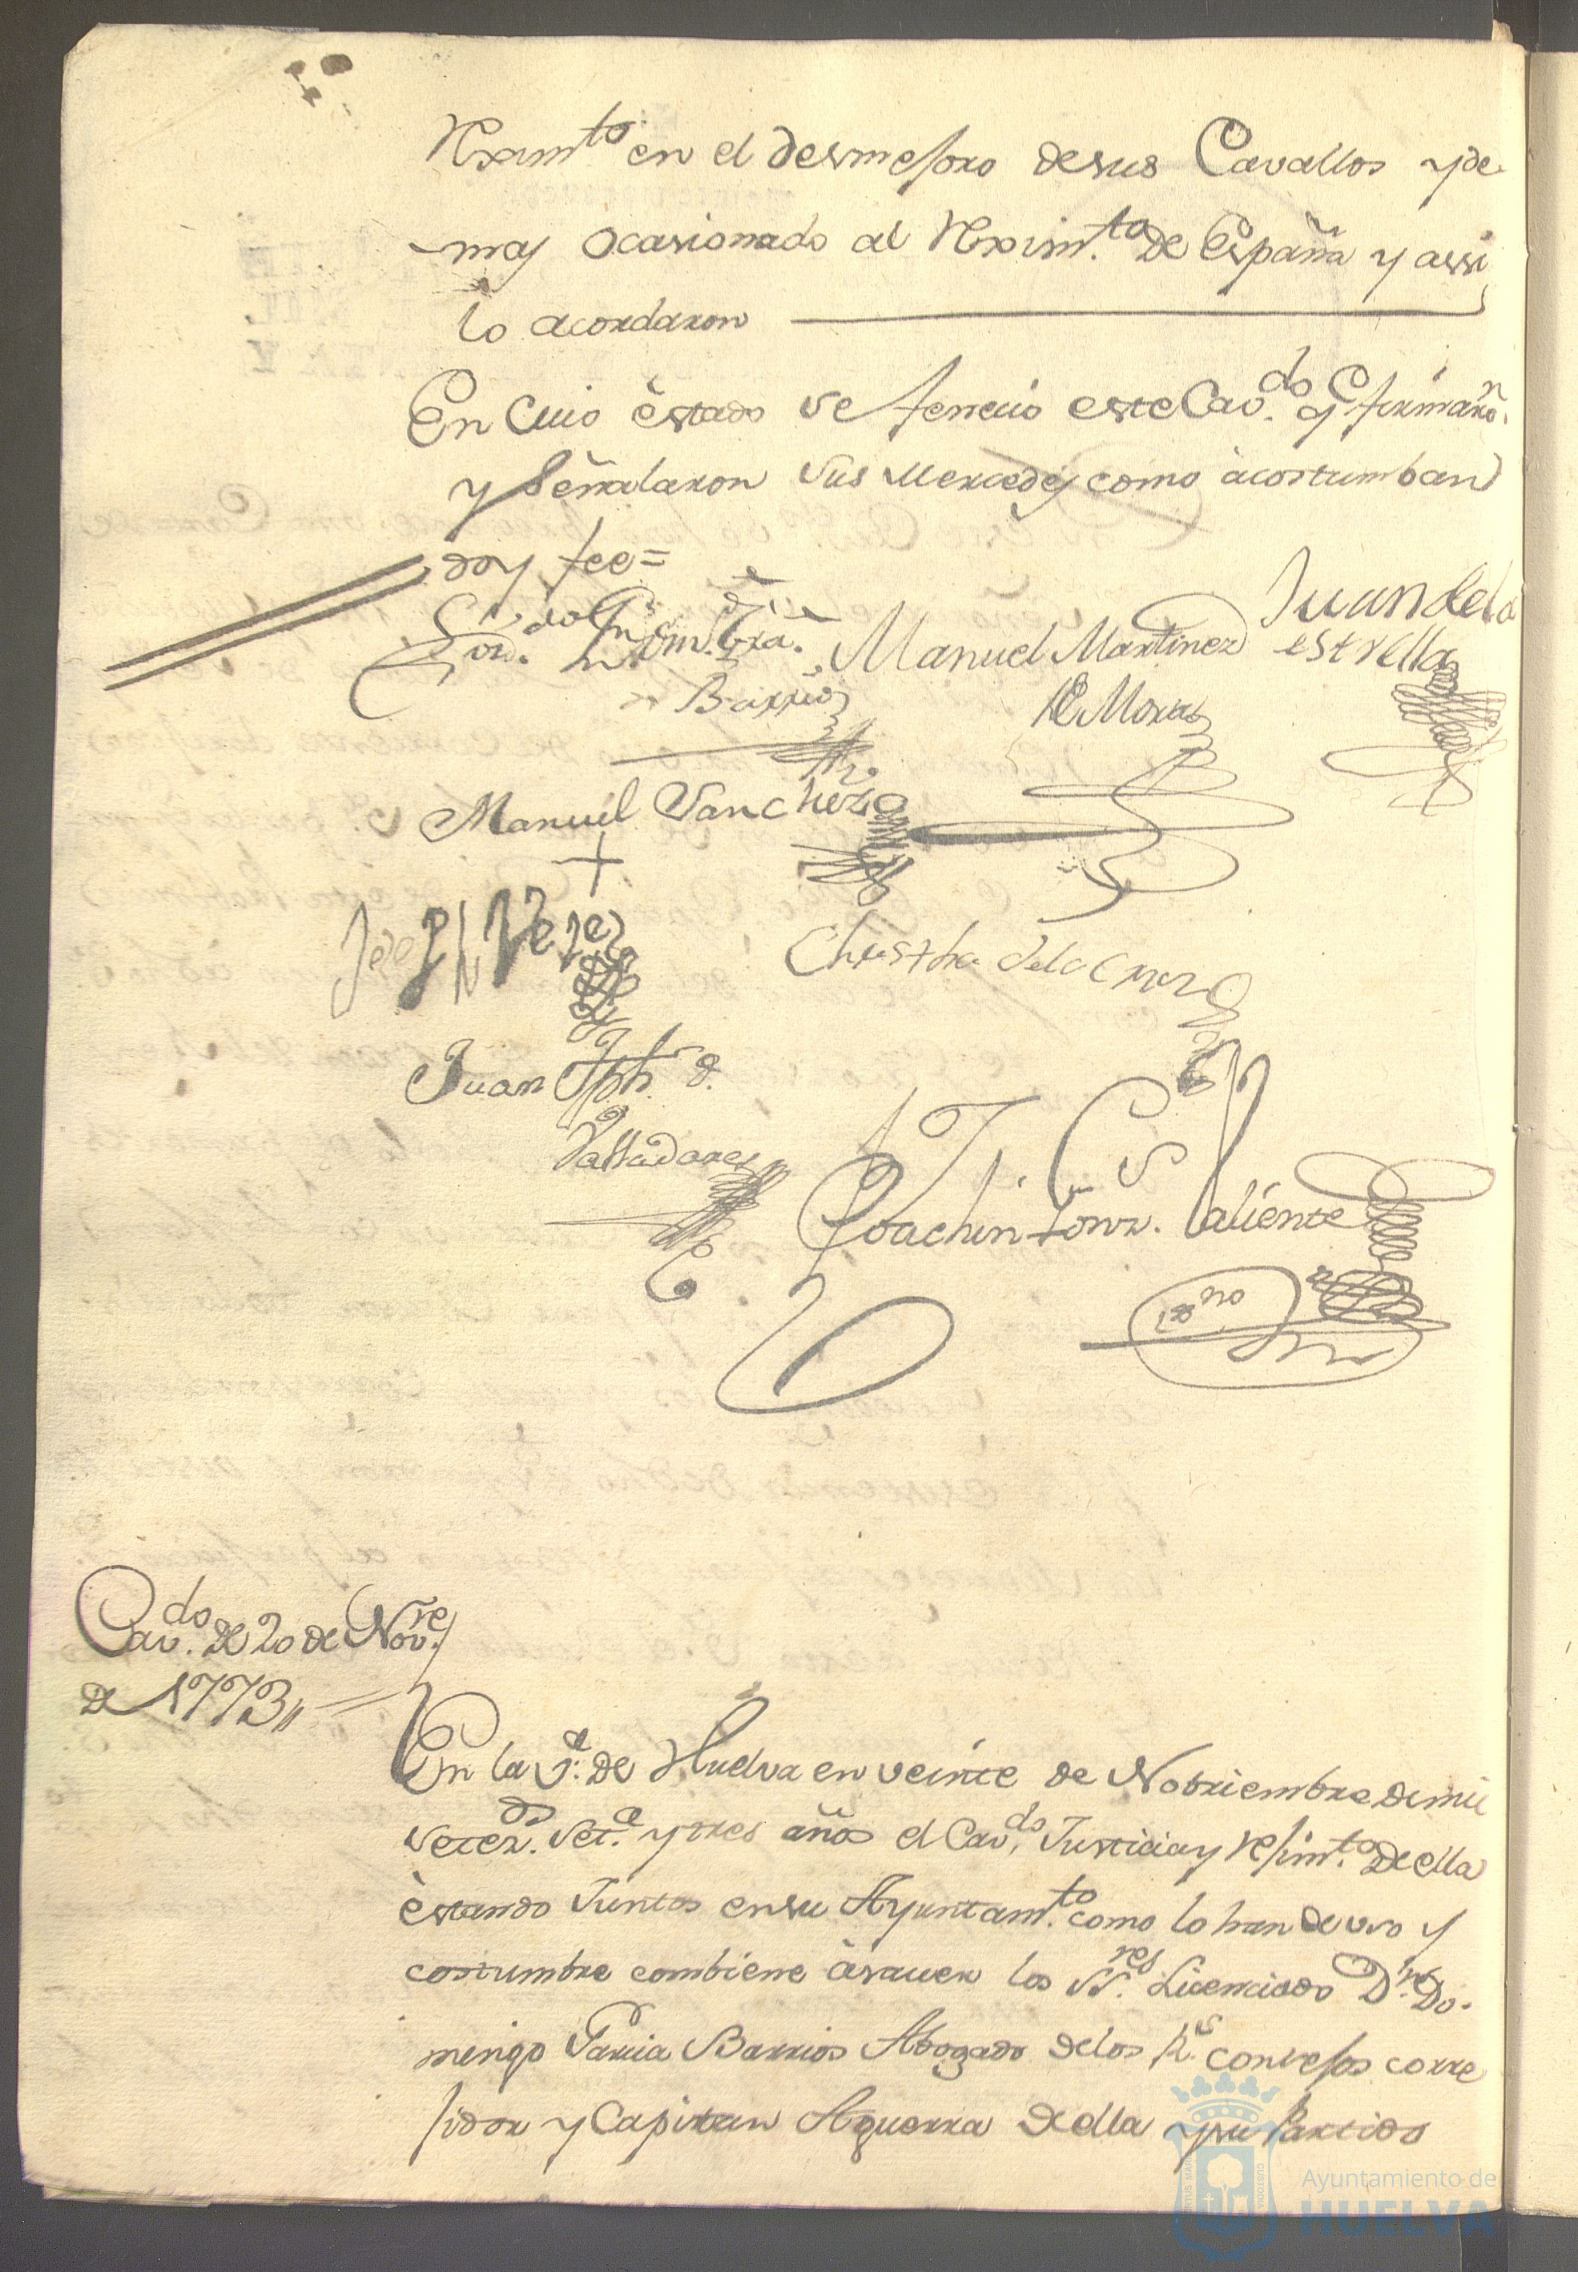 Reximto en el desmesoro de sus Cavallos y de
mas ocasionado al Reximto de España y assi
lo acordaron
En cuio estado se feneció este Cavdo y firmaron
y señalaron sus Mercedes como acostumban
doy fee=
Lizdo Dn Domgo Gra
Barrios
Manuel Martinez
de Mora
Juan dela
estrella
Manuel Sanchez
Joseph Perez
Christₐ dela Cruz
Juan Jph d
Valladares
Joachin Gonz. Valiente
ssno
Cavdo de 20 de Novre
de 1773
En la Va de Huelva en veinte de Nobriembre de mil
setezos seta y tres años el Cavdo Justicia y resimto de ella
estando Juntos en su Ayuntamto como lo han de uso y
costumbre combiene asauer los SSres Licenciado Dn Do-
mingo Garcia Barrios Abogado de los Rs consesos corre
sidor y Capitan Aguerra de ella y su Partido
Ayuntamiento de
HUELVA